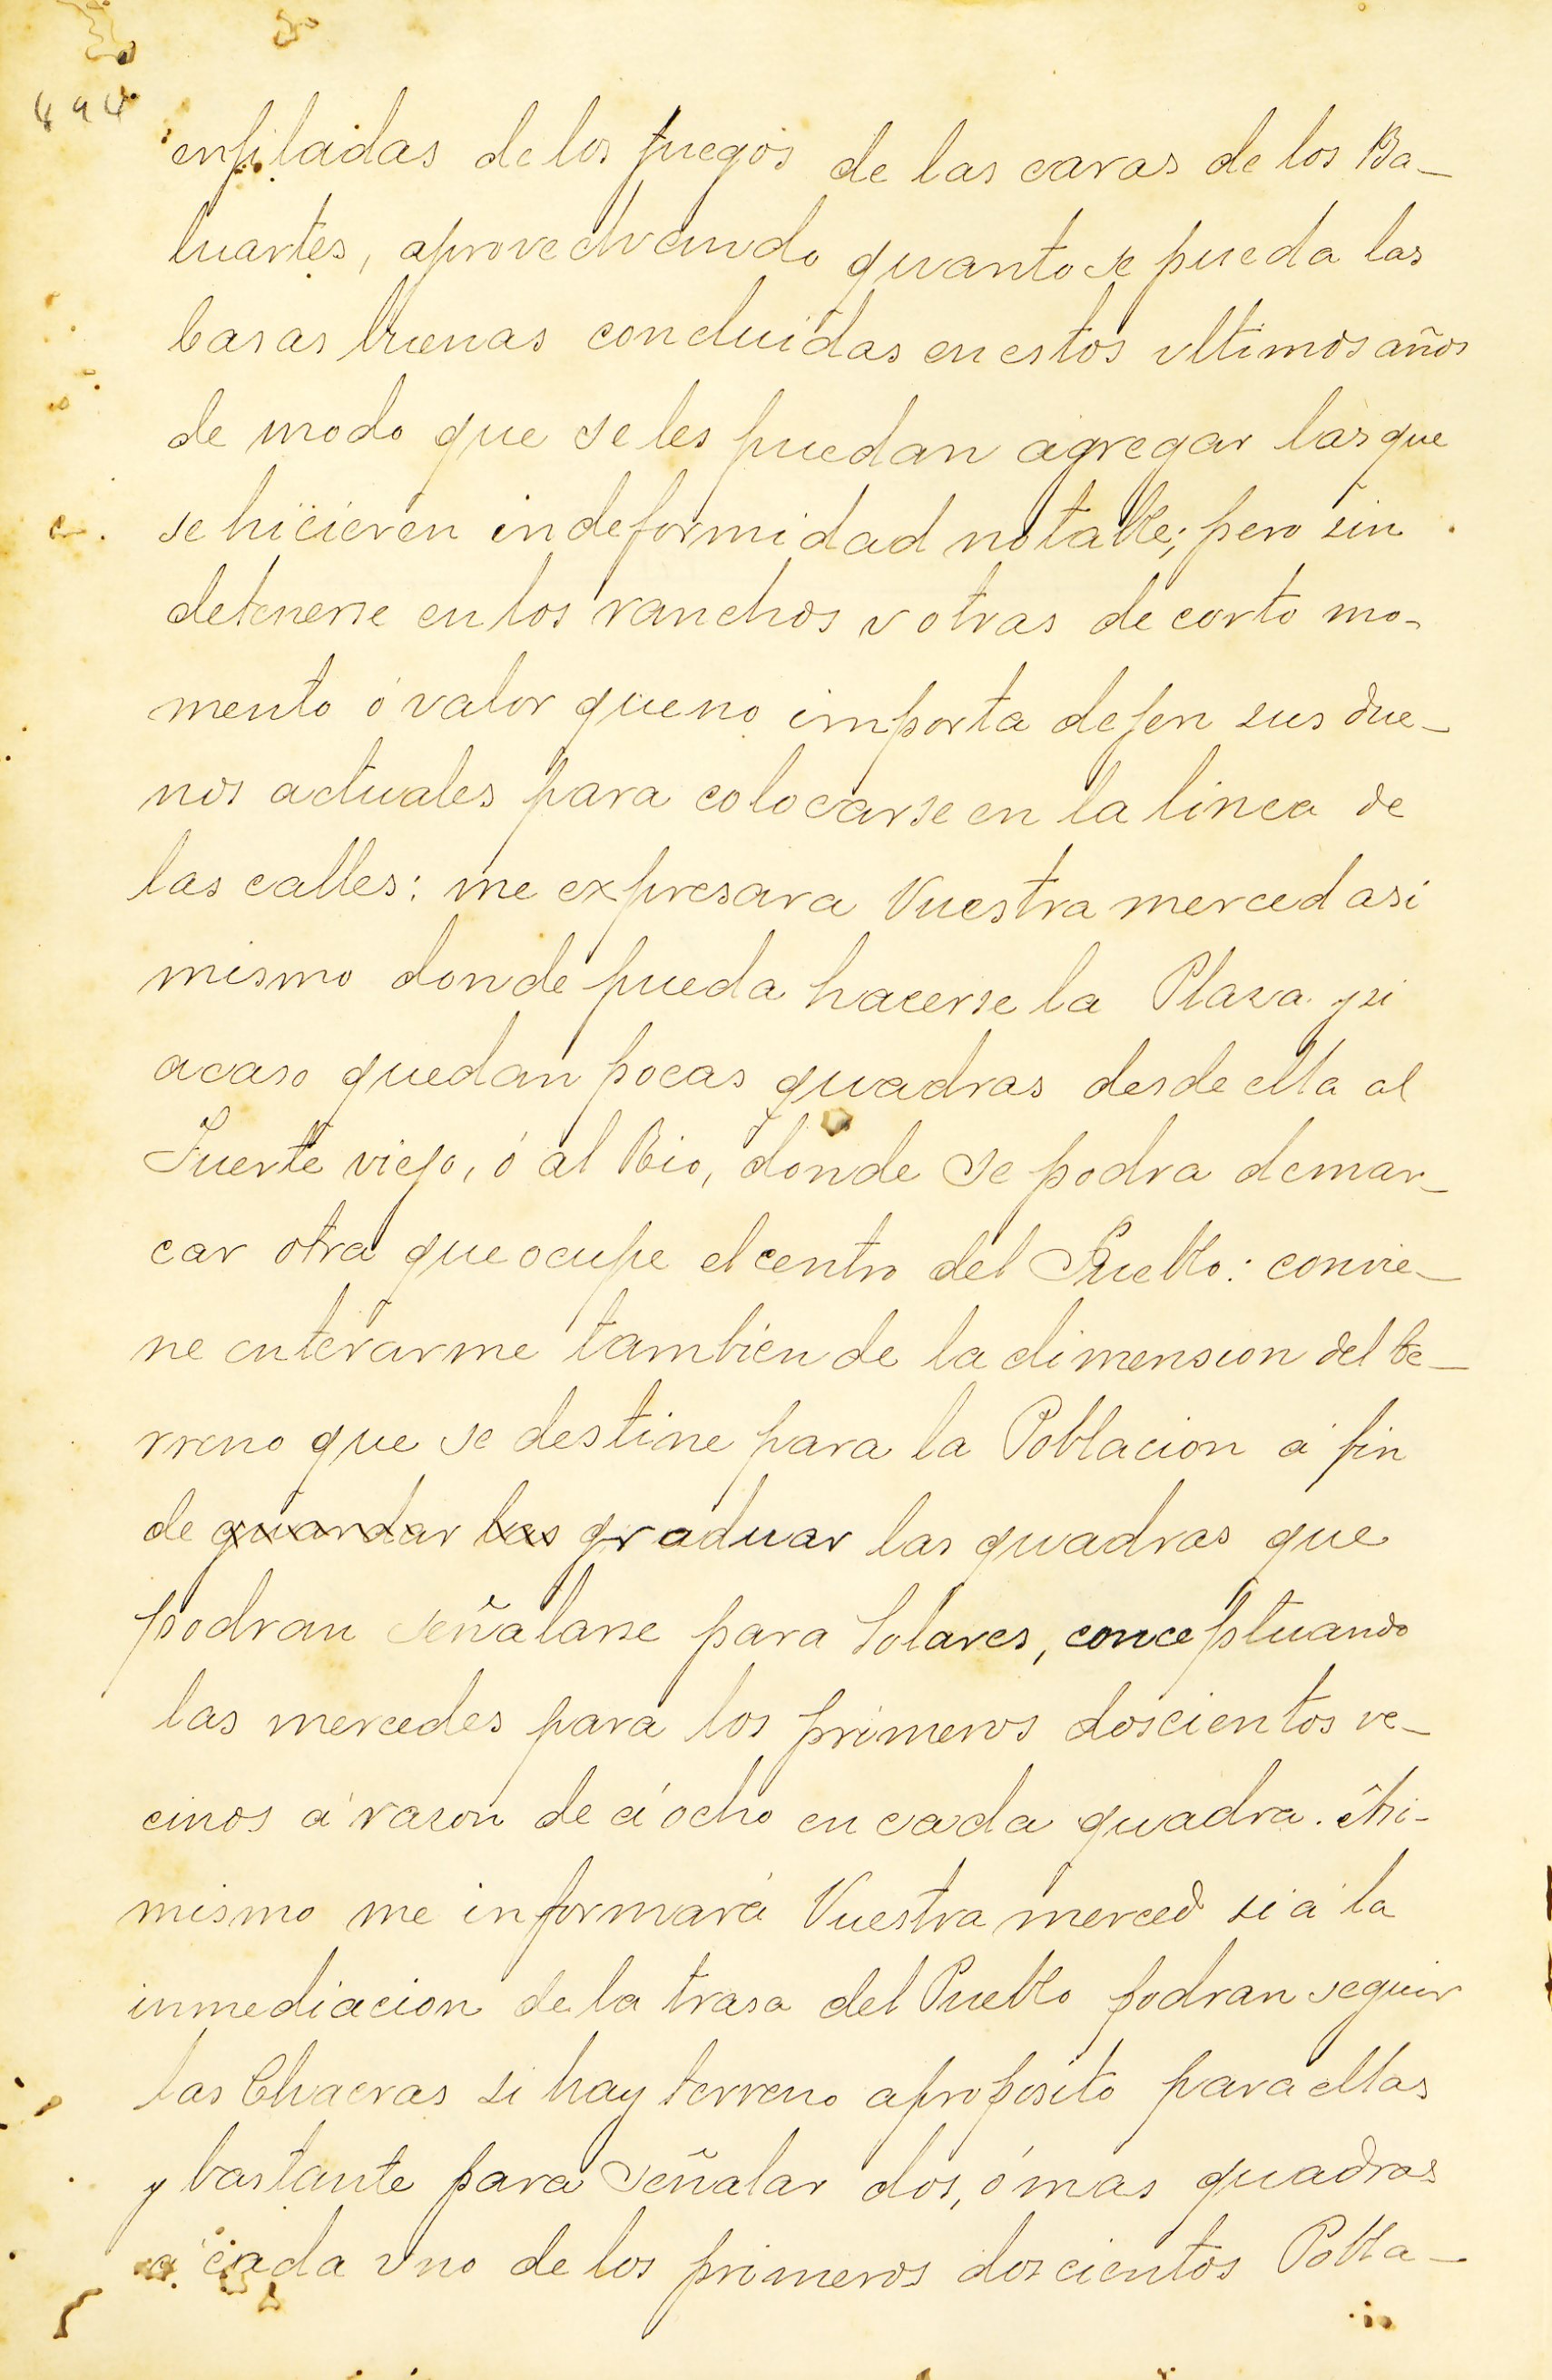 494
enfiladas de los fuegos de las caras de los Ba-
luartes, aprovechando quanto se pueda las
casas buenas concluidas en estos ultimos años
de modo que se les puedan agregar las que
se hicieren in deformidad notable; pero sin
detenerse en los ranchos v otras de corto mo-
mento ó valor que no importa dejen sus due-
nos actuales para colocarse en la linea de
las calles: me expresara Vuestra merced asi
mismo donde pueda hacerse la Plaza y si
acaso quedan pocas quadras desde ella al
Fuerte viejo, ó al Rio, donde se podra demar-
car otra que ocupe el centro del Pueblo: convie-
ne enterarme tambien de la dimension del te-
rreno que se destine para la Poblacion á fin
de guardar las graduar las quadras que
podran señalarse para Solares, conceptuando
las mercedes para los primeros doscientos ve-
cinos á razon de á ocho en cada quadra. Asi-
mismo me informará Vuestra merced si á la
inmediacion de la traza del Pueblo podran seguir
las Chacras si hay terreno aproposito para ellas
y bastante para señalar dos, ó mas quadras
á cada vno de los primeros doscientos Pobla-